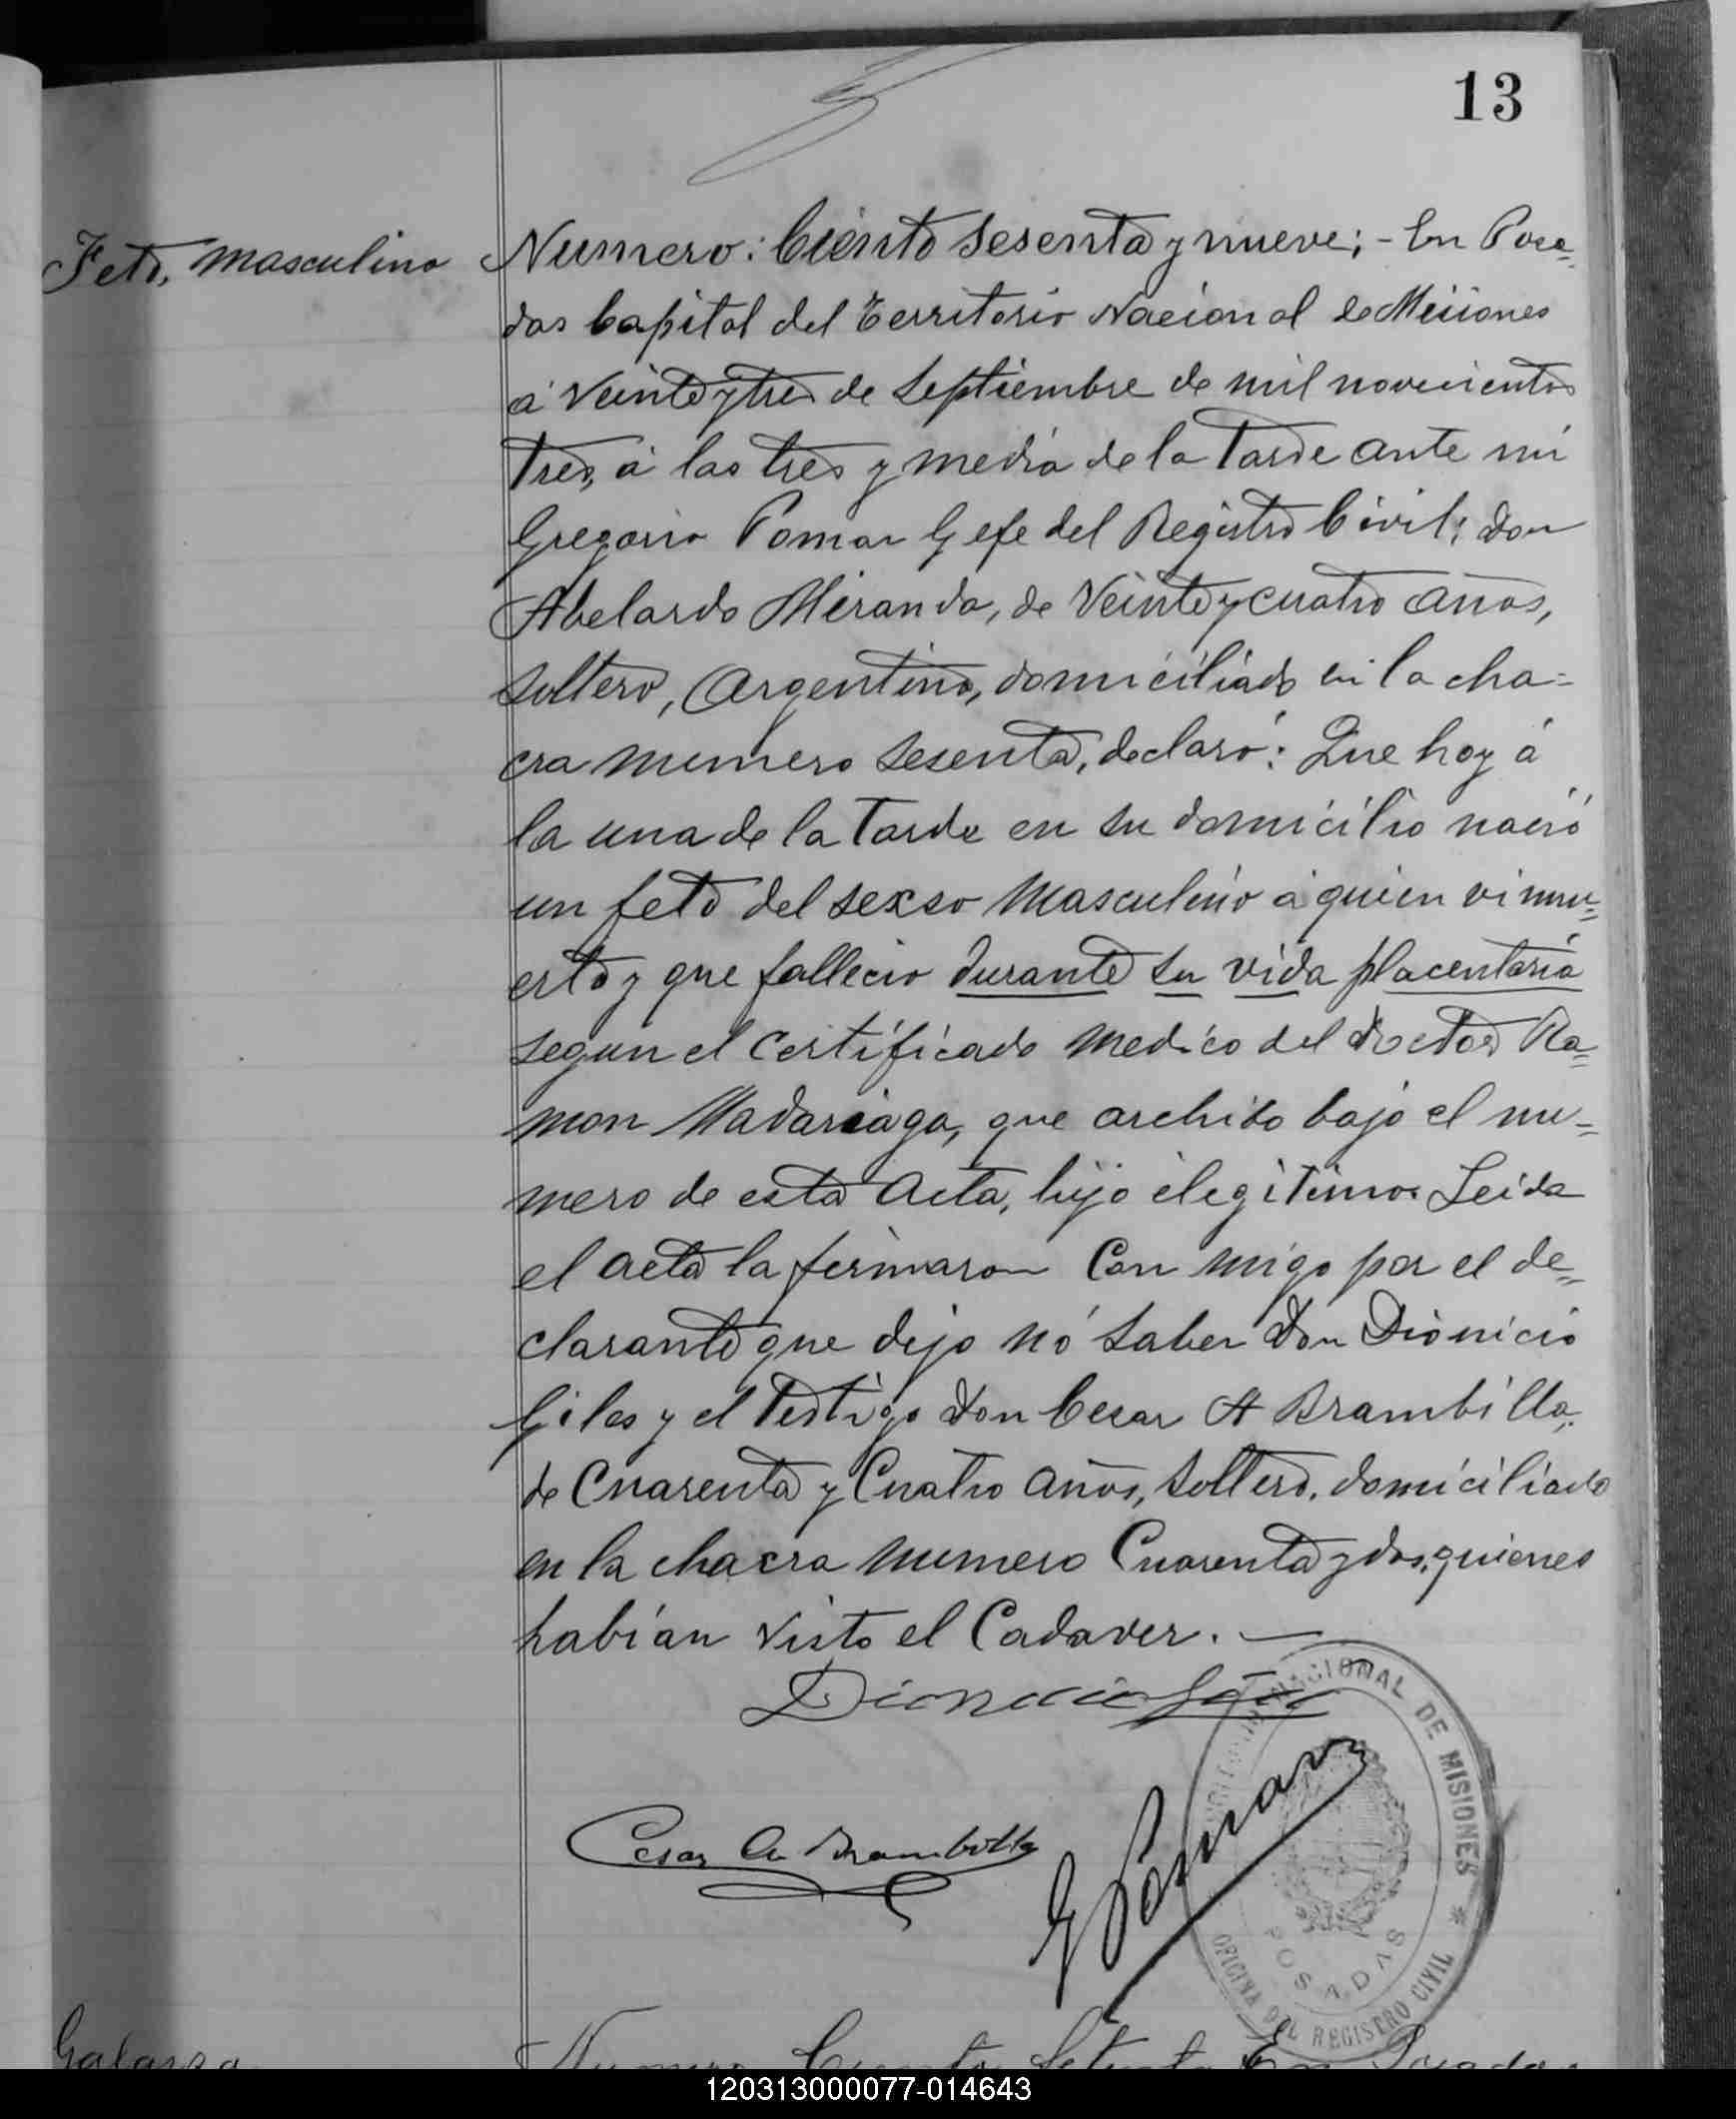 13
Feto, masculino
Numero: Ciento sesenta y nueve; - En Posa=
das Capital del Territorio Nacional de Misiones
á veinte y tres de Septiembre de mil novecientos
tres, á las tres y media de la tarde ante mi
Gregorio Pomar Gefe del Registro Civil; don
Abelardo Miranda, de veinte y cuatro años,
soltero, Argentino, domiciliado en la cha=
cra numero sesenta, declaró: Que hoy á
la una de la tarde en su domicilio nació
un feto del sexso masculino á quien vi mu=
erto y que fallecio durante su vida placentaria
segun el certificado medico del doctor Ra=
mon Madariaga, que archibo bajo el nu=
mero de esta Acta, hijo elegitimo. Leida
el acta la firmaron con migo por el de=
clarante que dijo nó saber don Dionicio
Giles y el testigo don Cesar A Brambilla,
de cuarenta y cuatro años, soltero, domiciliado
en la chacra numero cuarenta y dos, quienes
habían visto el Cadaver. —
Cesar A Brambilla
G Pomar
NACIONAL DE MISIONES *
OFICINA DEL REGISTRO CIVIL
POSADAS
Galarza
Numero Ciento Setenta En Posadas
120313000077-014643